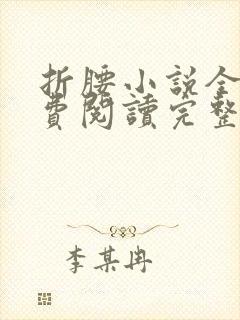 折腰小說全
費閱讀完整
李某冉